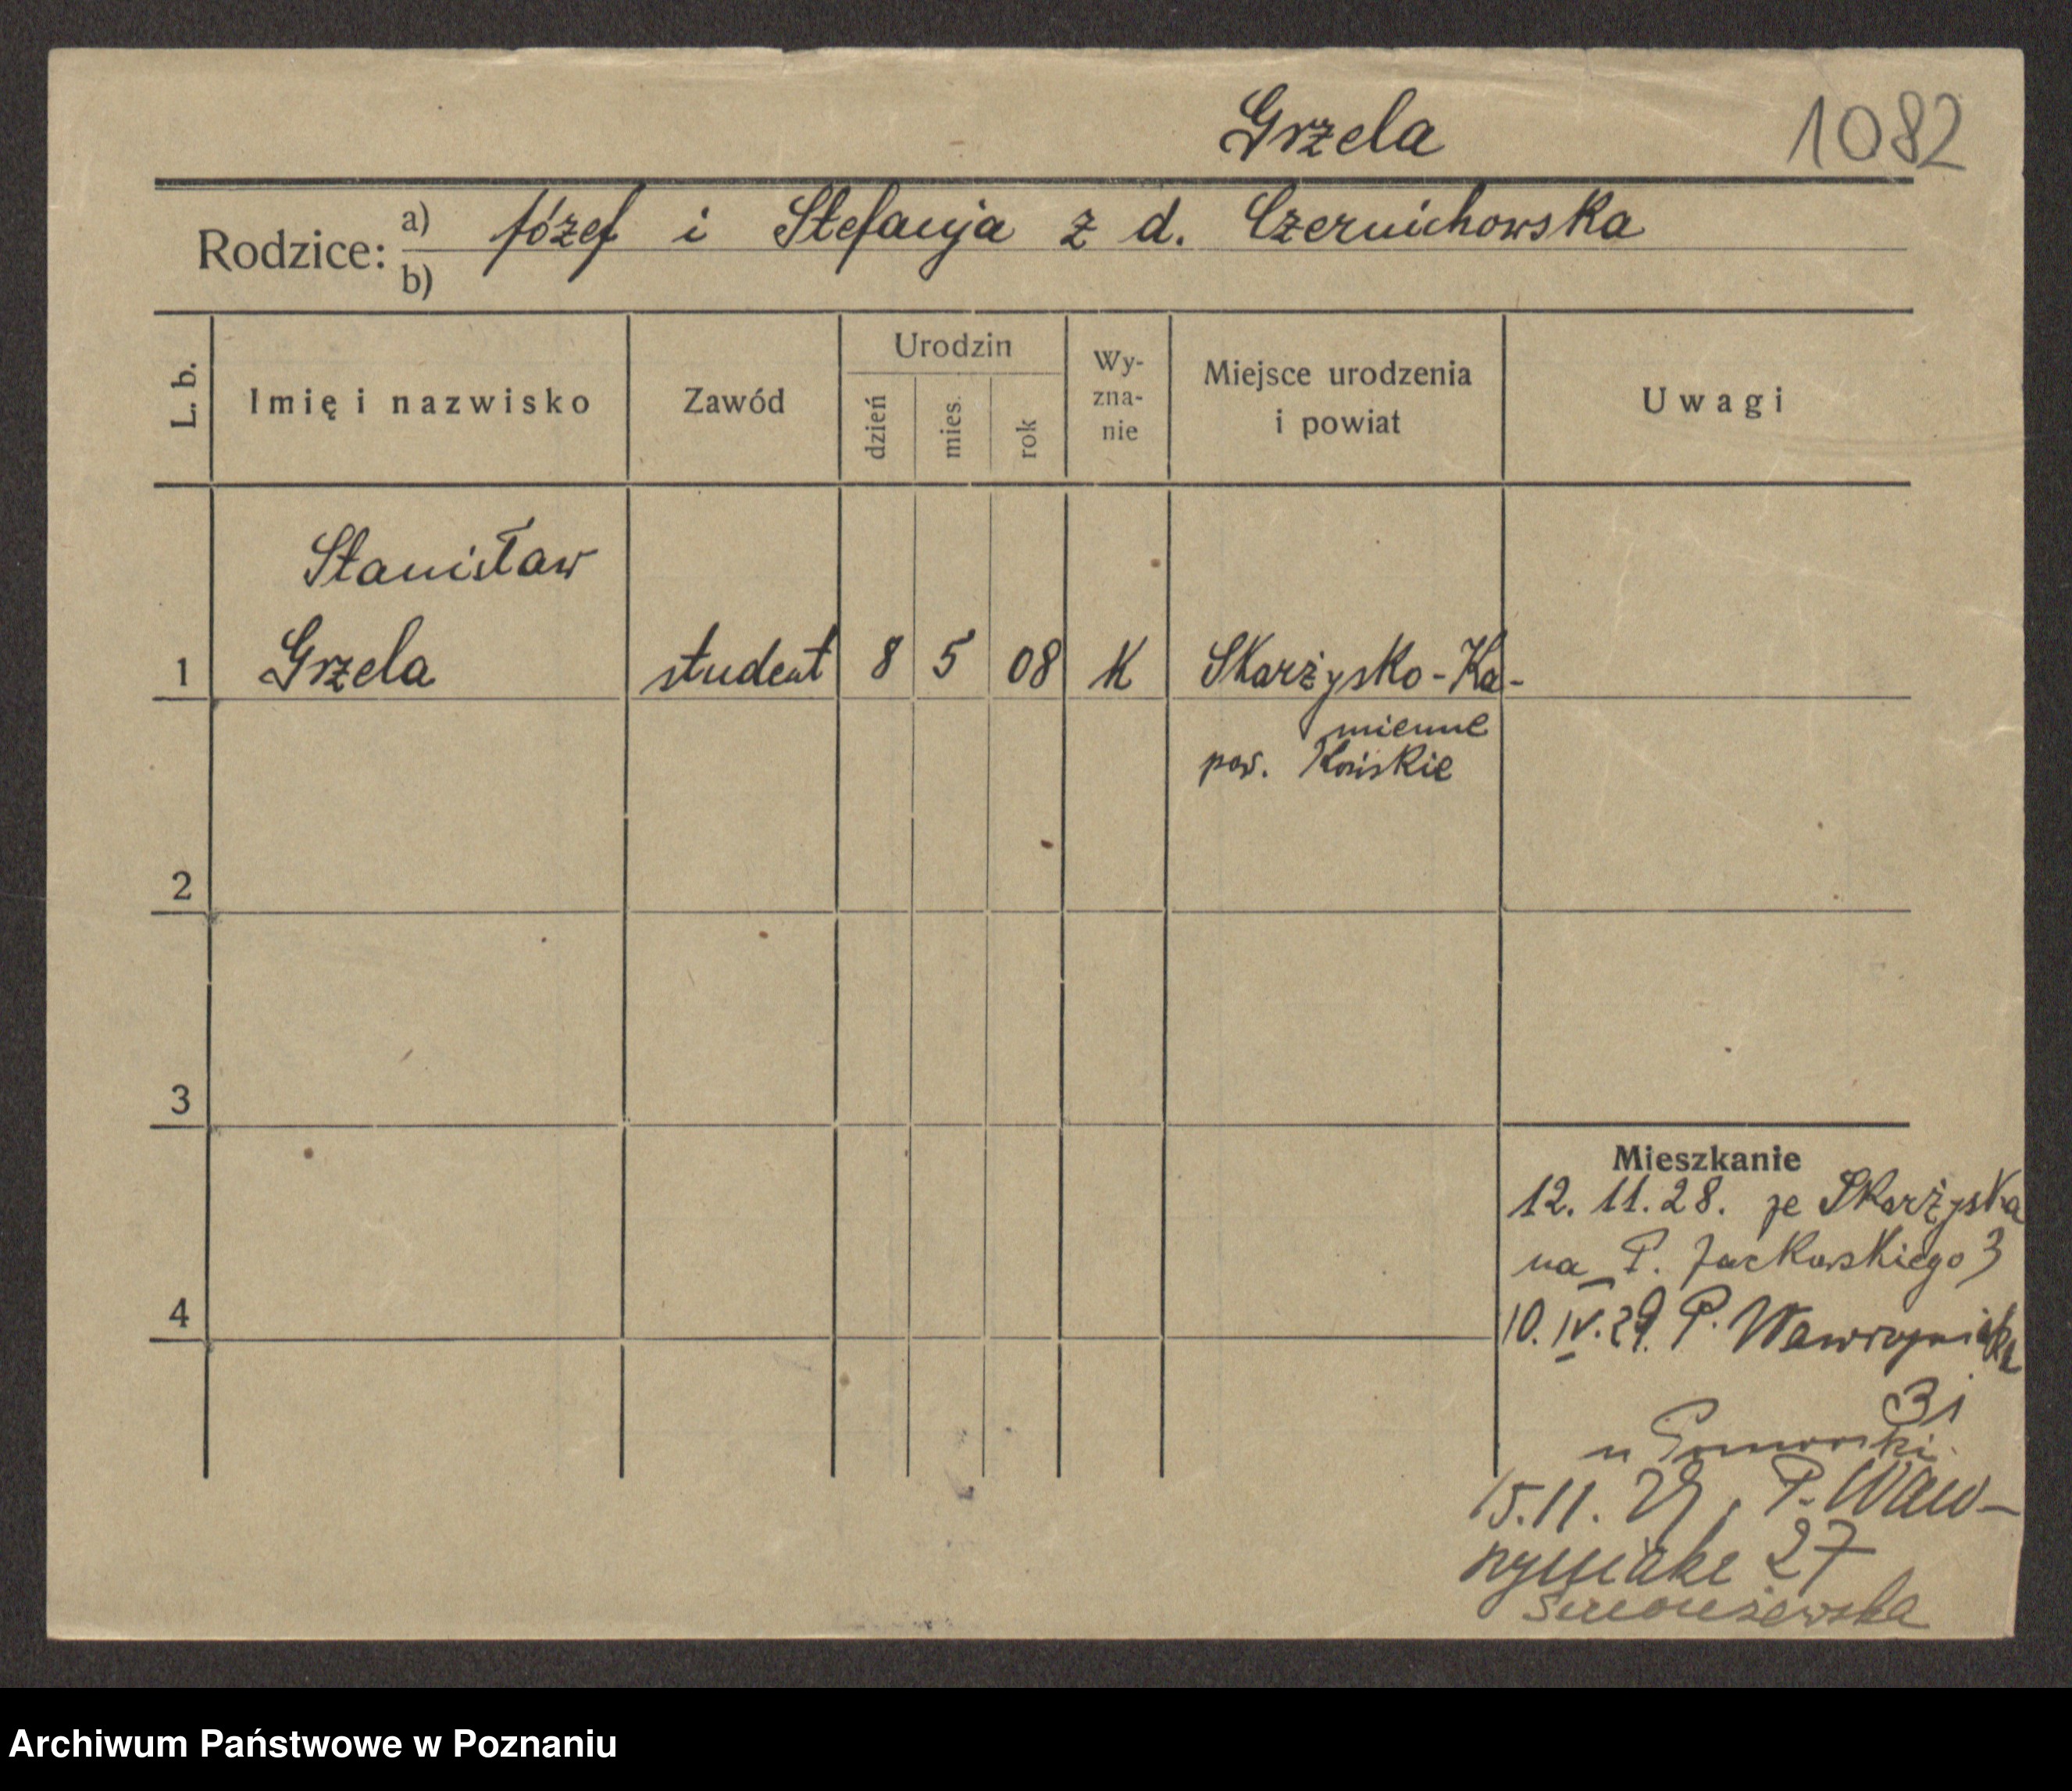 Grzela
1082
Rodzice: a) Józef i Stefanja z d. Czernichowska
b)
L. b.
Imię i nazwisko
Zawód
Urodzin
dzień
mies.
rok
Wy-
zna-
nie
Miejsce urodzenia
i powiat
Uwagi
Stanisław
1 Grzela student 8 5 08 K Skarżysko-Ka-
mienne
pow. Końskie
2
3
Mieszkanie
12. 11. 28. ze Skarżyska
na P. Jackowskiego 3
4
10. IV. 29. P. Wawrzyniaka
31
u
15.11. 29, P. Waw-
rzyniaka 27
Archiwum Państwowe w Poznaniu